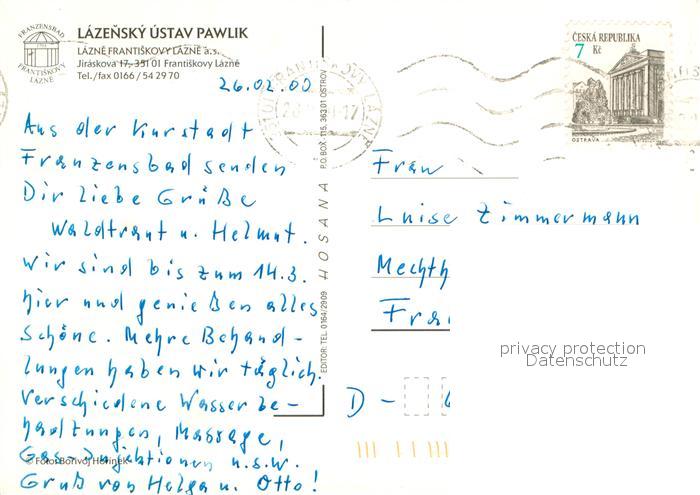 FRANZENSBAD
FRANTIŠKOVY
LÁZNĚ
LÁZEŇSKÝ ÚSTAV PAWLIK
LÁZNĚ FRANTIŠKOVY LÁZNĚ a.s.
Jiráskova 17, 351 01 Františkovy Lázně
Tel./fax 0166 / 54 29 70
26.02.00
Aus der Kurstadt
Franzensbad senden
Dir liebe Grüße
Waldtraut u. Helmut.
Wir sind bis zum 14.3.
hier und genießen alles
Schöne. Mehre Behand-
lungen haben wir täglich.
Verschiedene Wasserbe-
handlungen, Massage,
Gas-Injektionen u.s.w.
Gruß von Helga u. Otto!
© Foto: Bořivoj Hořínek
EDITOR: TEL. 0164/2909 HOSANA P.O.BOX 115, 363 01 OSTROV
ČESKÁ REPUBLIKA
7 Kč
OSTRAVA
Frau
Luise Zimmermann
Mechth
D -
privacy protection
Datenschutz